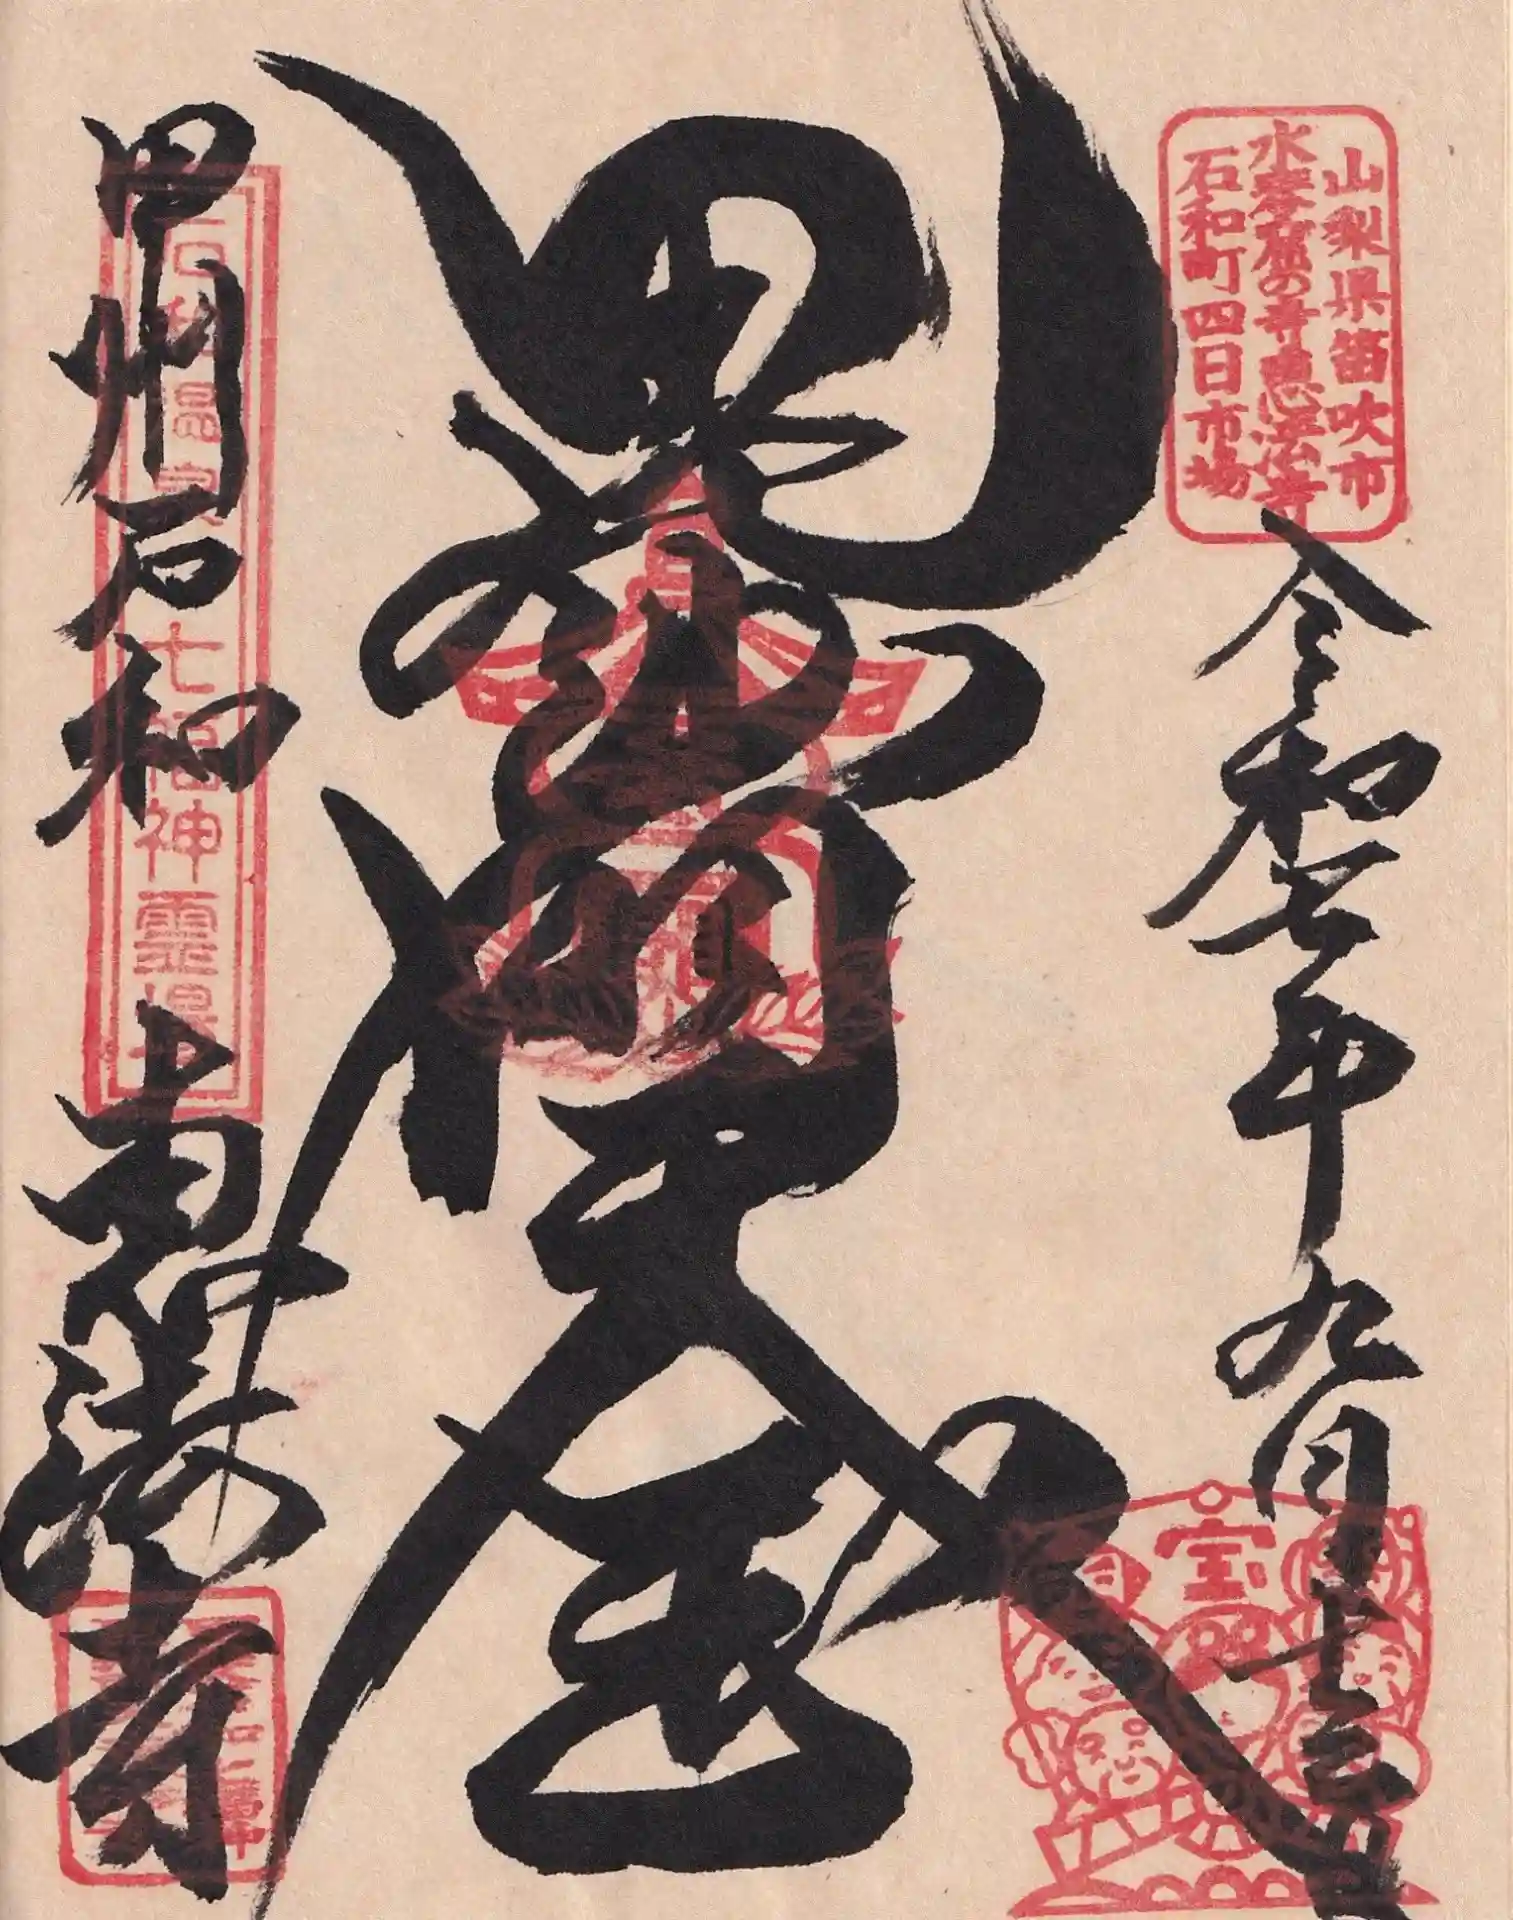 山梨県笛吹市
水琴窟の寺恵法寺
石和町四日市場
令和七年九月十三日
宝
毘沙門天
甲州石和 恵法寺
石和温泉七福神霊場